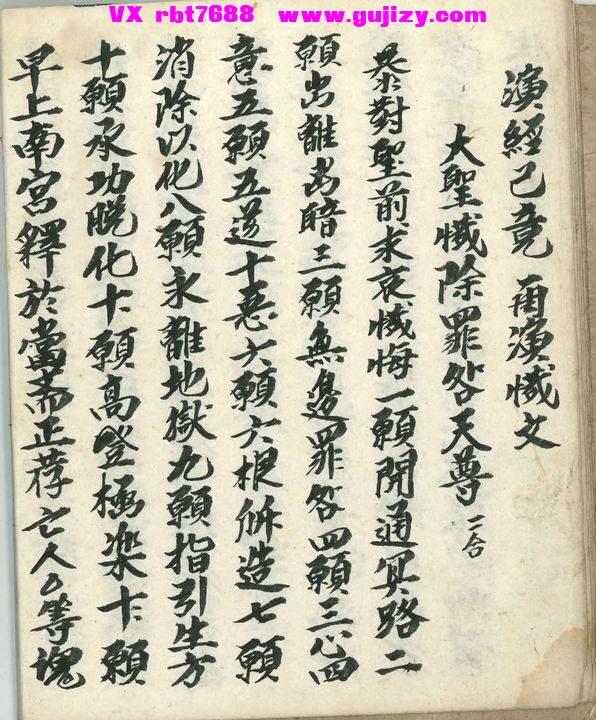 VX rbt7688 www.gujizy.com
演經已竟 再演懺文
大聖懺除罪咎天尊 三合
暴對聖前求哀懺悔一願開通冥路二
願出離幽暗三願無邊罪咎四願三心四
意五願五道十惡六願六根所造七願
消除以化八願永離地獄九願指引生方
十願承功脫化十願高登極楽十願
早上南宮釋於當斋正荐亡人厶等魂